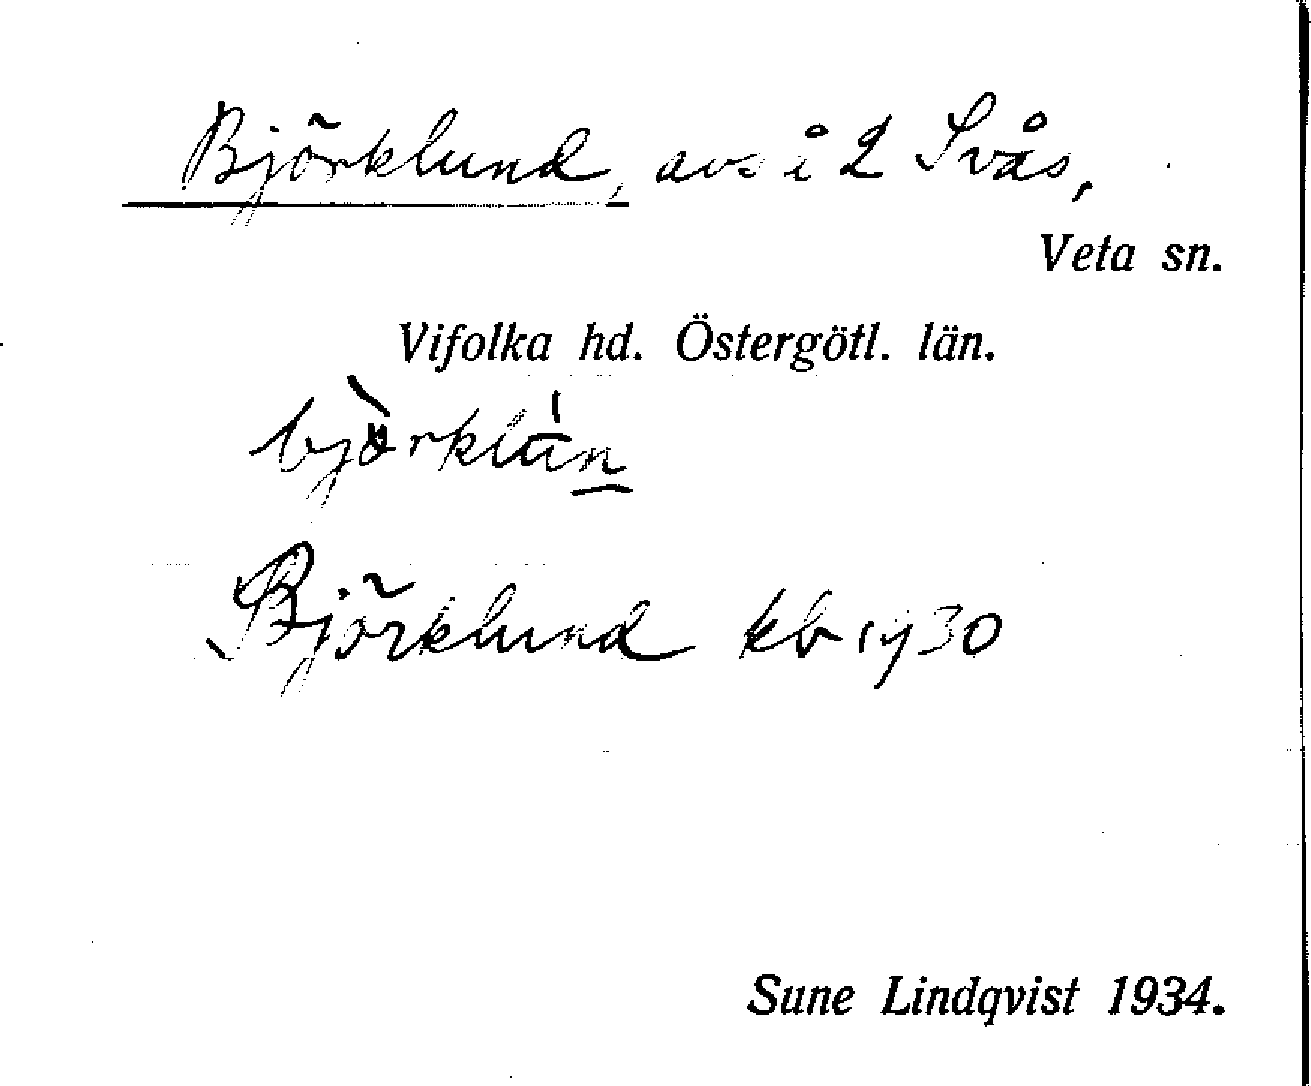 Björklund, avs i 2 Svås,
Veta sn.
Vifolka hd. Östergötl. län.
Björklund kb 1930
Sune Lindqvist 1934.